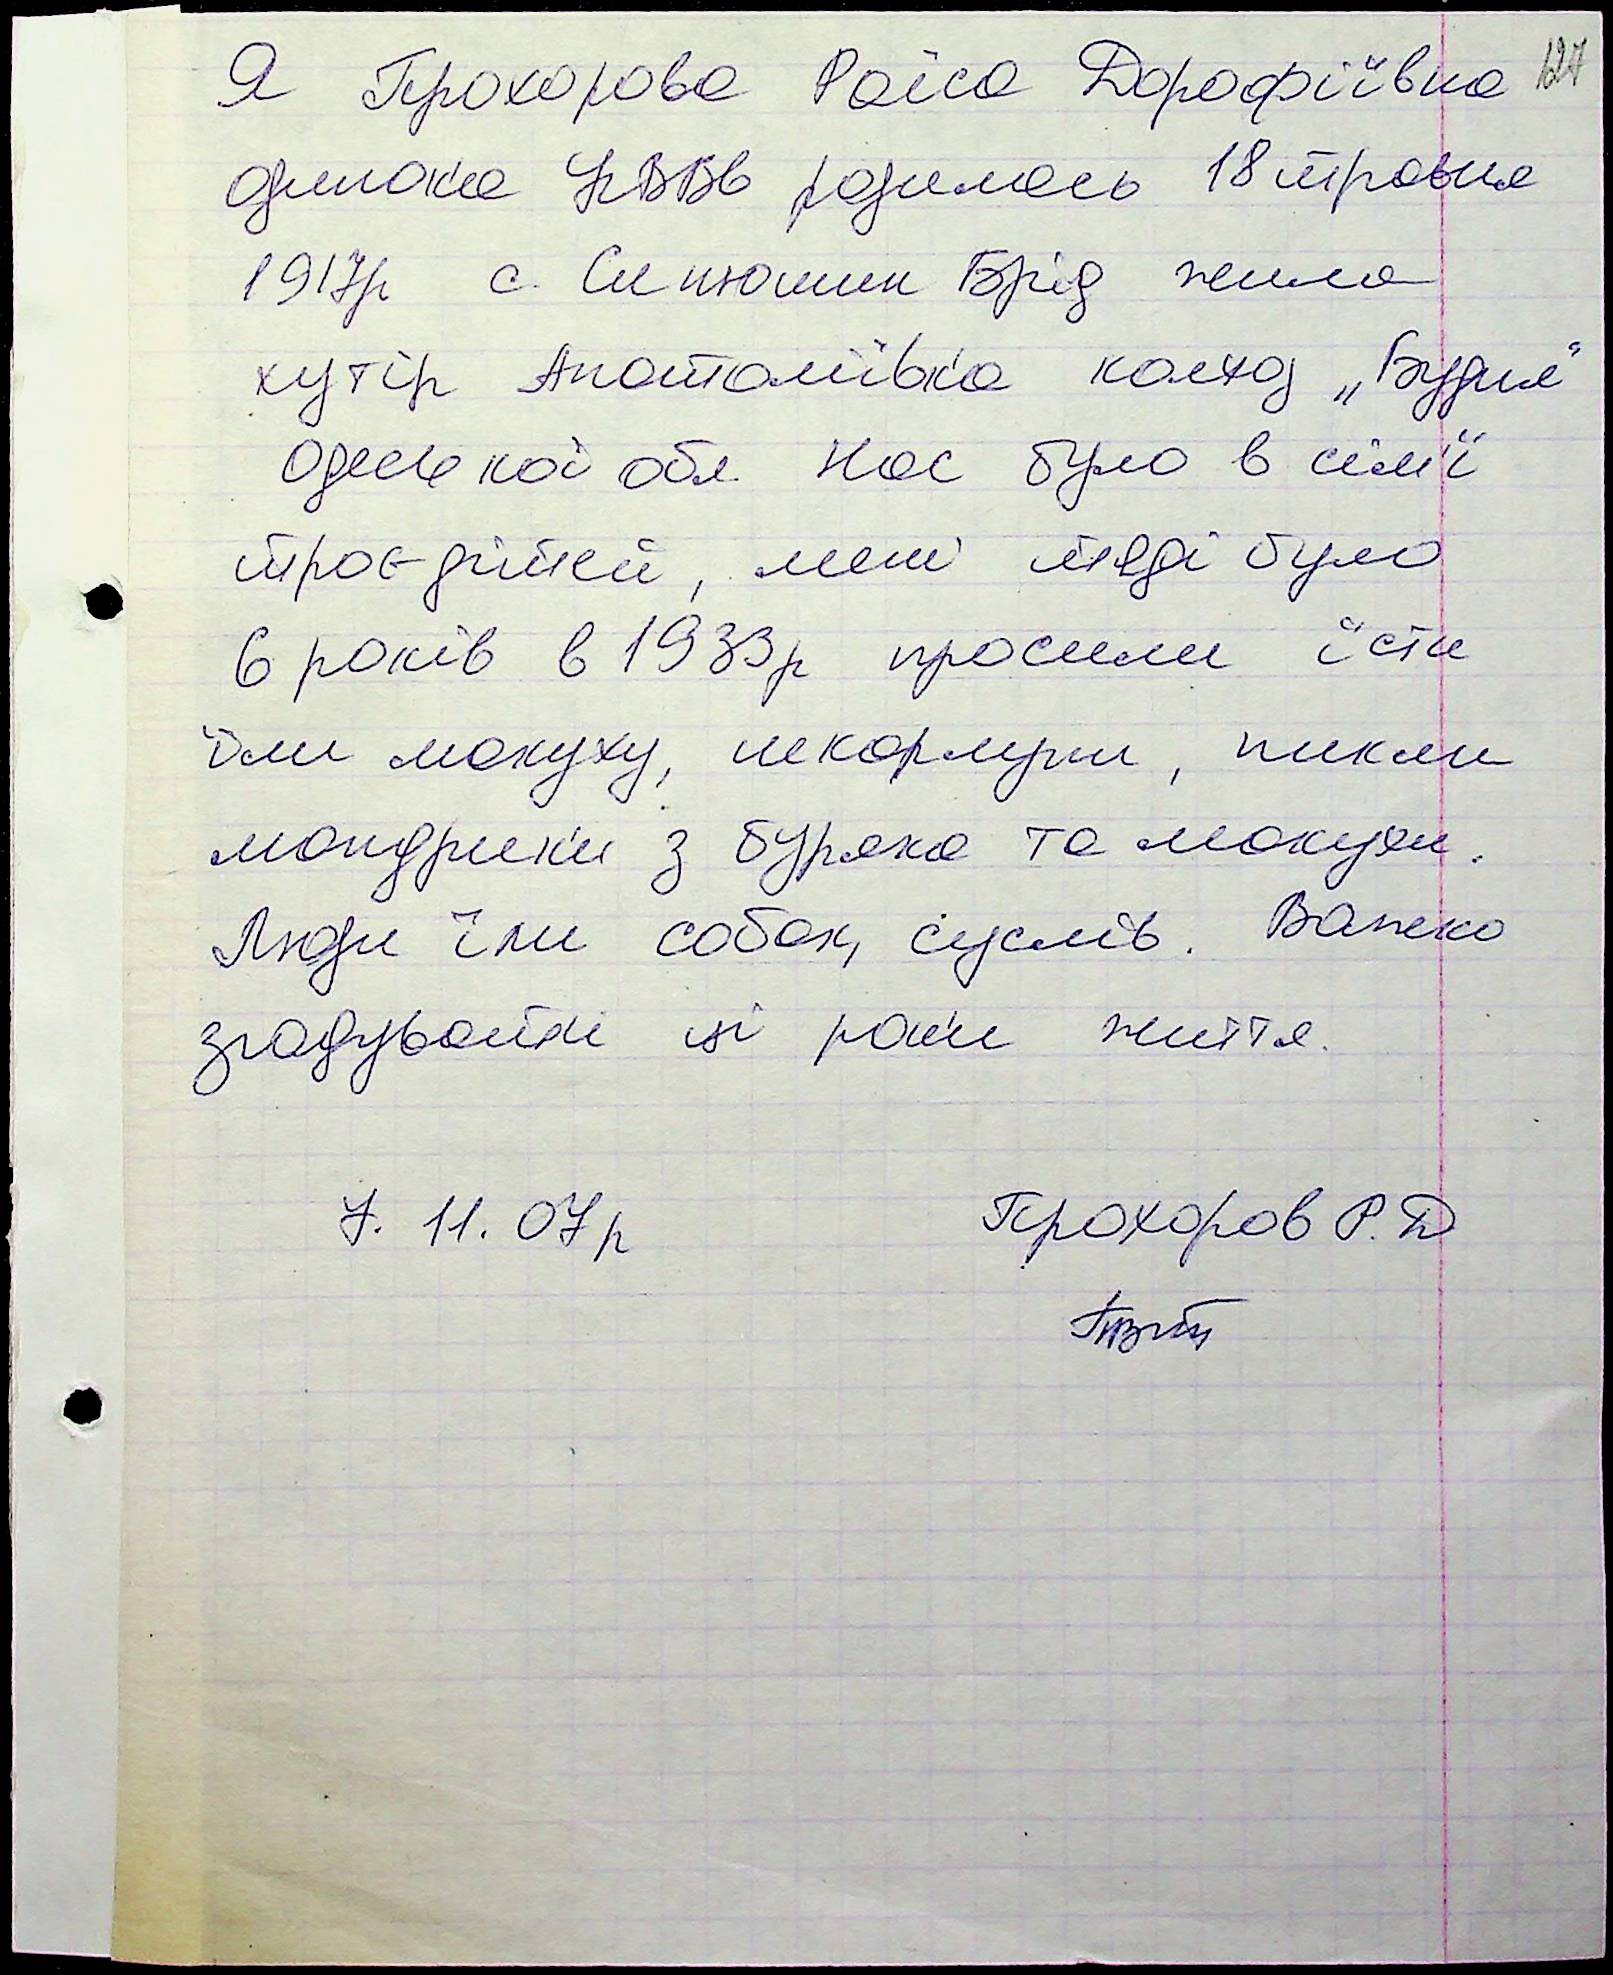 127
Я Прохорова Раїса Дорофіївна
одинока УВВв родилась 18 травня
1917р с. Синюшин Брід жила
хутір Анатоліївка колхоз „Будня"
Одеської обл Нас було в сімї
троє дітей, мені тоді було
6 років в 1933р просили їсти
їли макуху, пекли
мандрики з буряка та макухи.
Люди їли собак, суслів. Важко
згадувати ці роки життя.
7. 11. 07р Прохоров Р. Д